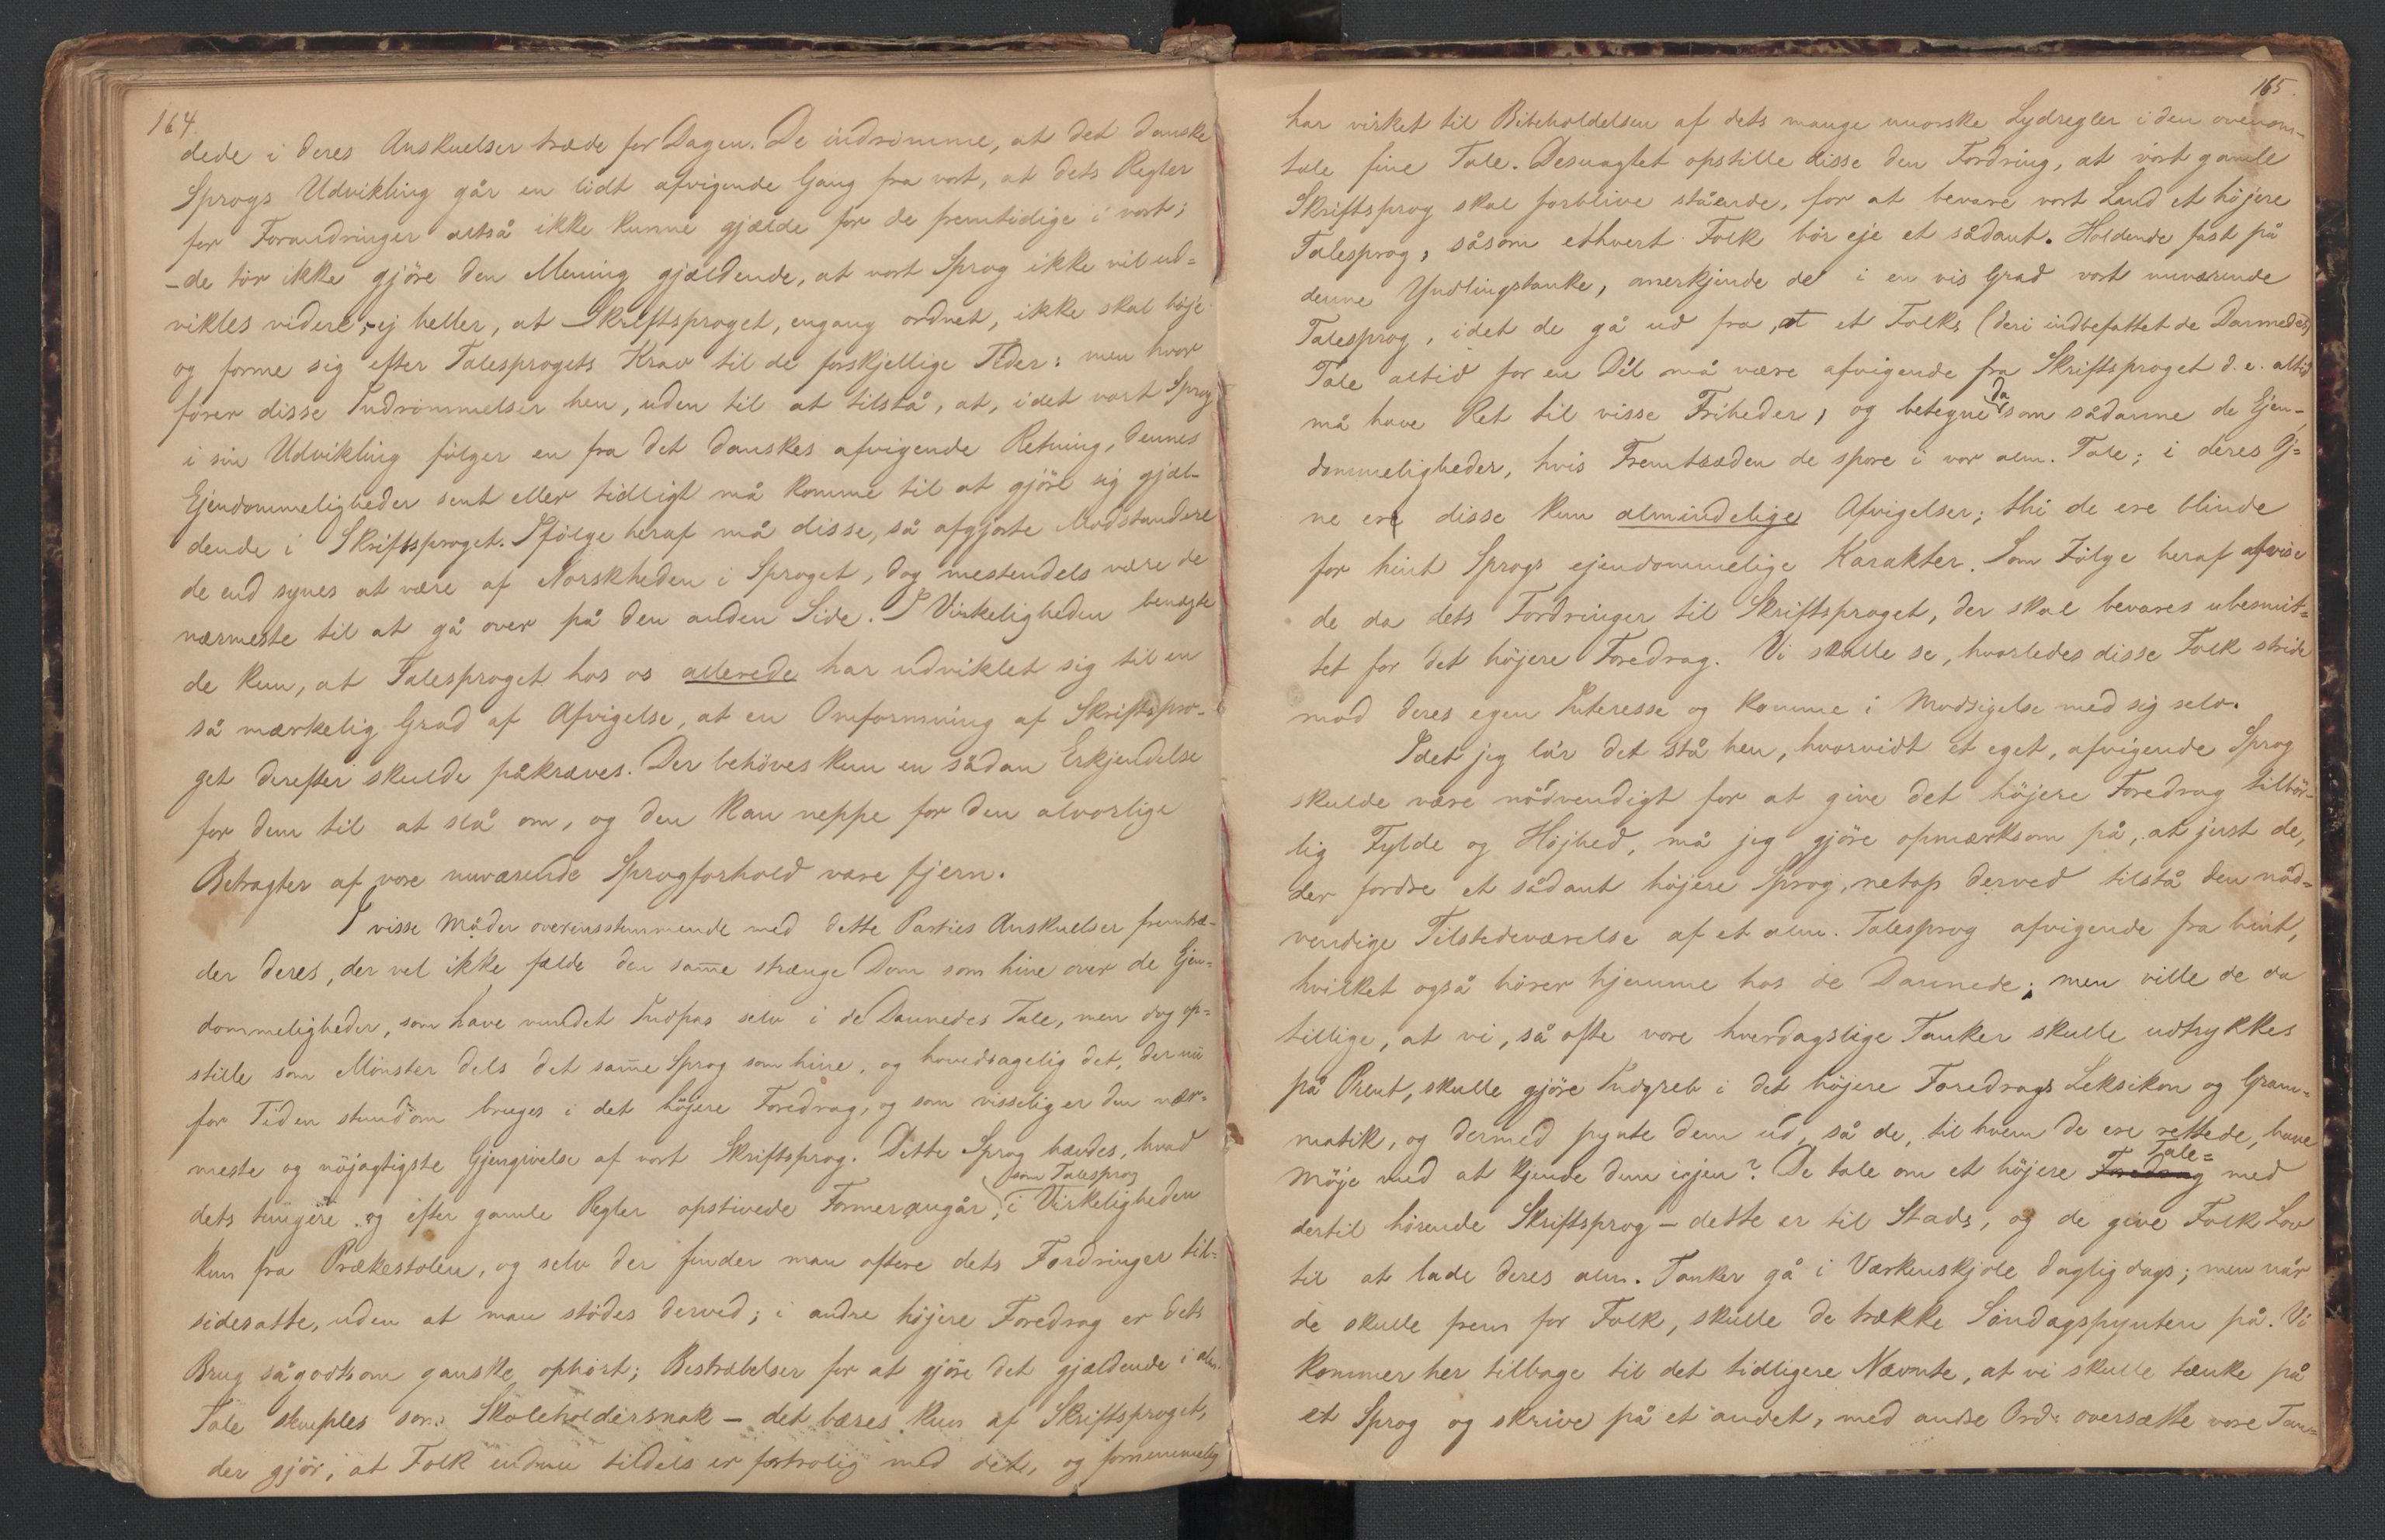 164.
dede i deres Anskuelser træde for Dagen. De indrömme, at det danske
Sprogs Udvikling går en lidt afvigende Gang fra vort, at dets Regler
for Forandringer altså ikke kunne gjælde for de fremtidige i vort;
– de tör ikke gjöre den Mening gjældende, at vort Sprog ikke vil ud=
vikles videre, ej heller, at Skriftsproget, engang ordnet, ikke skal böje
og forme sig efter Talesprogets Krav til de forskjellige Tider: men hvor
förer disse Indrömmelser hen, uden til at tilstå, at, idet vort Sprog
i sin Udvikling fölger en fra det danskes afvigende Retning, dennes
Ejendommeligheder sent eller tidligt må komme til at gjöre sig gjæl-
dende i Skriftsproget. Ifölge heraf må disse, så afgjorte Modstandere
de end synes at være af Norskheden i Sproget, dog mestendels være de
nærmeste til at gå over på den anden Side. I Virkeligheden benægte
de kun, at Talesproget hos os allerede har udviklet sig til en
så mærkelig Grad af Afvigelse, at en Omformning af Skriftspro-
get derefter skulde påkræves. Der behöves kun en sådan Erkjendelse
for dem til at slå om, og den kan neppe for den alvorlige
Betragter af vore nuværende Sprogforhold være fjern.
I visse Måder overensstemmende med dette Parties Anskuelser fremtræ-
der deres, der vel ikke fælde den sam̅e strænge Dom som hine over de Ejen=
dommeligheder, som have vundet Indpas selv i de Dannedes Tale, men dog op=
stille som Mönster dels det sam̅e Sprog som hine, og hovedsagelig det, der nu
for Tiden stundom bruges i det höjere Foredrag, og som visselig er den nær=
meste og nöjagtigste Gjengivelse af vort Skriftsprog. Dette Sprog hævdes, hvad
som Talesprog
dets tungere og efter gamle Regler opstivede Former angår, i Virkeligheden
kun fra Prækestolen, og selv der finder man oftere dets Fordringer til=
sidesatte, uden at man stödes derved; i andre höjere Foredrag er dets
Brug sågodtsom ganske ophört; Bestræbelser for at gjöre det gjældende i alm.
Tale skuples som Skoleholdersnak – det bæres kun af Skriftsproget,
der gjör, at Folk endnu tildels er fortrolig med det, og fornemmelig
165.
har virket til Bibeholdelsen af dets mange unorske Lydregler i den ovenom-
tale fine Tale. Desuagtet opstille disse den Fordring, at vort gamle
Skriftsprog skal forblive stående, for at bevare vort Land et höjere
Talesprog, såsom ethvert Folk bör eje et sådant. Holdende fast på
denne Yndlingstanke, anerkjende de i en vis Grad vort nuværende
Talesprog, idet de gå ud fra, at et Folks (deri indbefattet de Dannedes)
Tale altid for en Del må være afvigende fra Skriftsproget d. e. altid
da
må have Ret til visse Friheder, og betegne som sådanne de Ejen-
dommeligheder, hvis Fremtræden de spore i vor alm. Tale; i deres Öj=
ne ere disse kun almindelige Afvigelser; thi de ere blinde
for hint Sprogs ejendommelige Karakter. Som Fölge heraf afvise
de da dets Fordringer til Skriftsproget, der skal bevares ubesmit=
tet for det höjere Foredrag. Vi skulle se, hvorledes disse Folk stride
mod deres egen Interesse og komme i Modsigelse med sig selv.
Idet jeg lår det stå hen, hvorvidt et eget, afvigende Sprog
skulde være nödvendigt for at give det höjere Foredrag tilbör-
lig Fylde og Höjhed, må jeg gjöre opmærksom på, at just de,
der fordre et sådant höjere Sprog, netop derved tilstå den nöd=
vendige Tilstedeværelse af et alm. Talesprog afvigende fra hint,
hvilket også hörer hjemme hos de Dannede; men ville de da
tillige, at vi, så ofte vore hverdagslige Tanker skulle udtrykkes
på Prent, skulle gjöre Indgreb i det höjere Foredrags Leksikon og Gram=
matik, og dermed pynte dem ud, så de, til hvem de ere rettede, have
Tale=
Möje med at kjende dem igjen? De tale om et höjere Foredrag med
dertil hörende Skriftsprog – dette er til Stads, og de give Folk Lov
til at lade deres alm. Tanker gå i Værkenskjole daglig dags; men når
de skulle frem for Folk, skulle de trække Söndagspynten på. Vi
kommer her tilbage til det tidligere Nævnte, at vi skulle tænke på
et Sprog og skrive på et andet, med andre Ord: oversætte vore Tan=